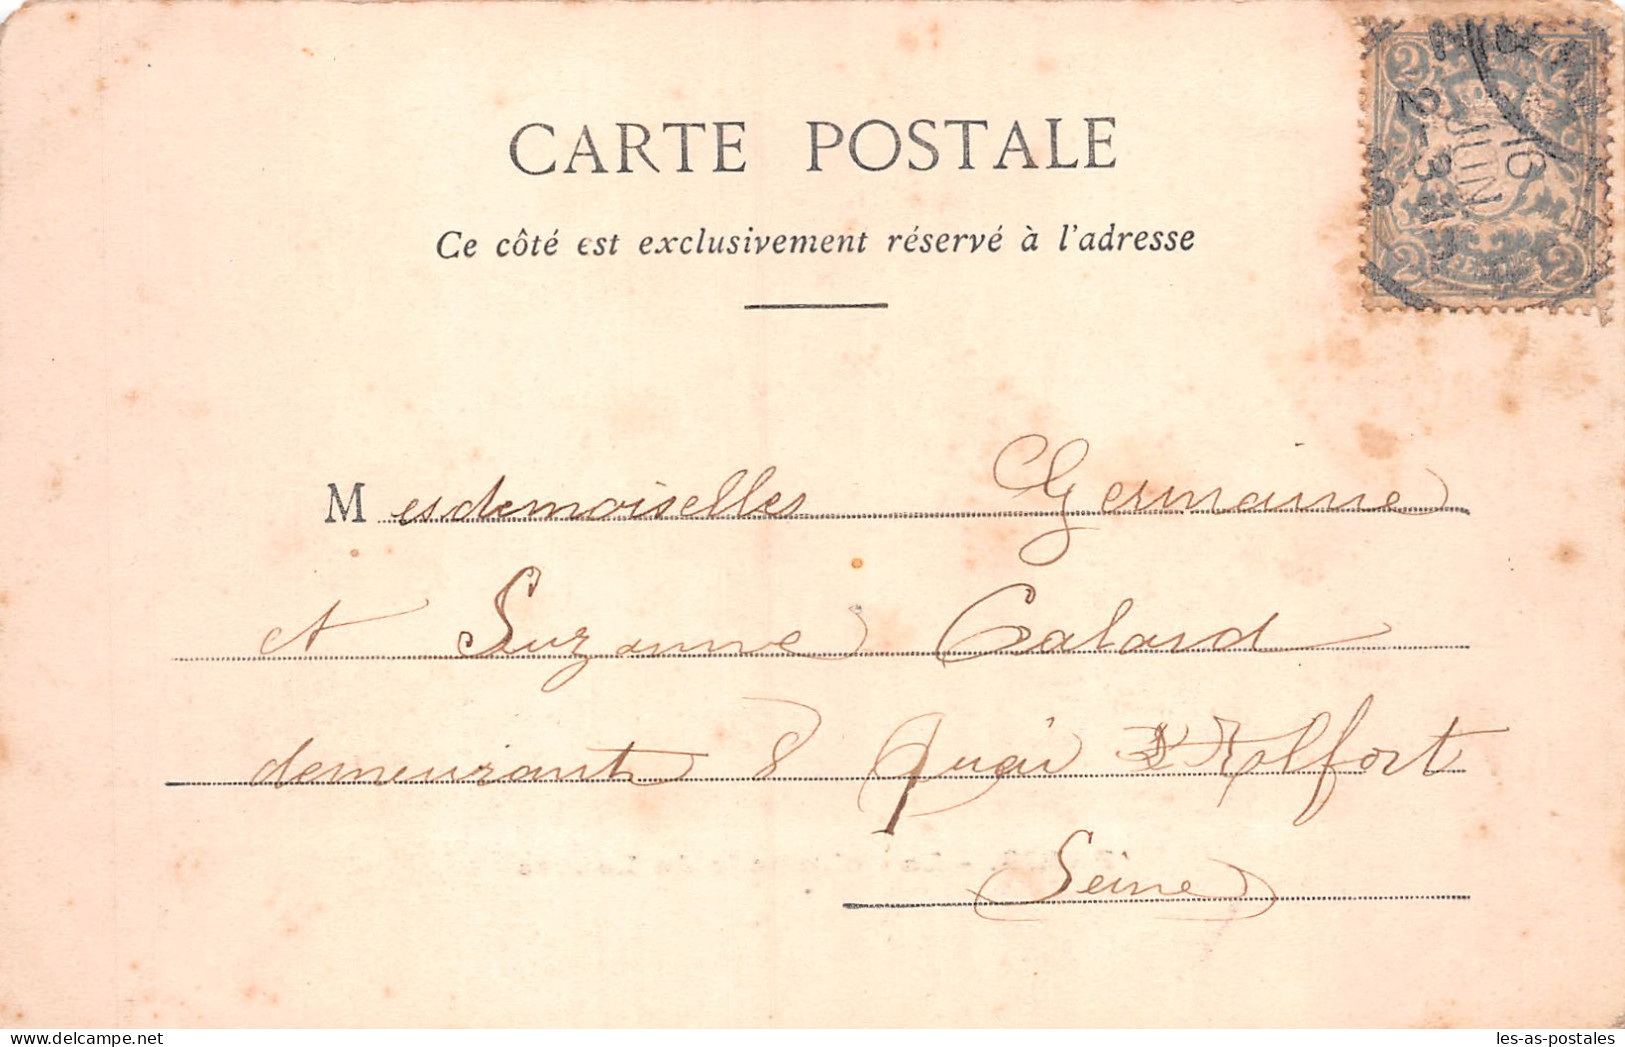 CARTE POSTALE
Ce côté est exclusivement réservé à l'adresse
2 2
2-3
16
JUIN
2 2
Mesdemoiselles Germaine
et Suzanne Calard
demeurant 8 Quai d'Alfort
Seine
les-as-postales